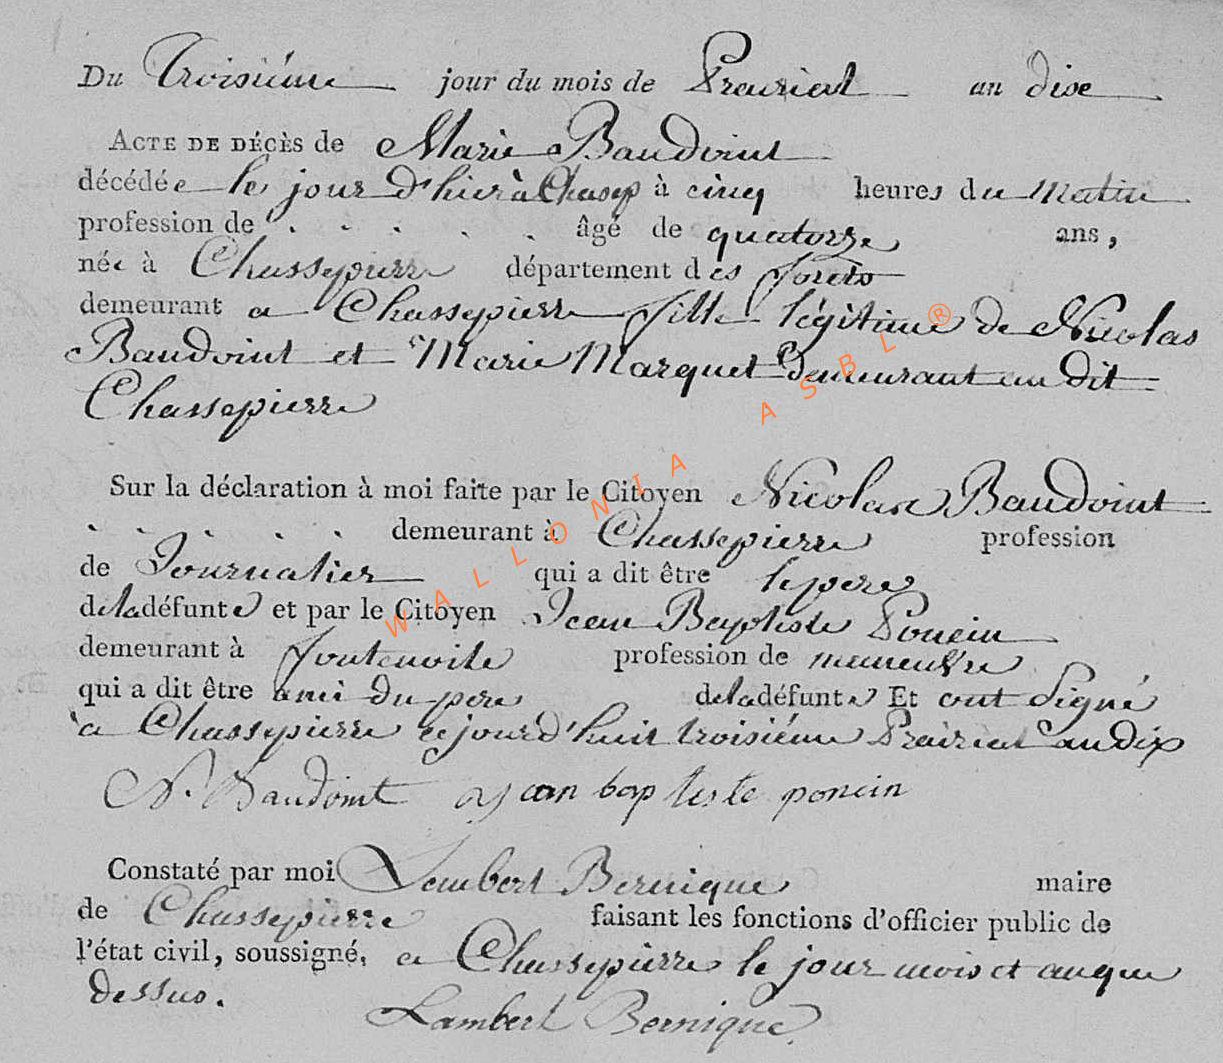 Du Troisiéme jour du mois de Prairial an dixe
ACTE DE DÉCÈS de Marie Baudoint
décédée le jour d'hier à Chasep à cinq heures du matin
profession de . . . . . âgé de quatorze ans,
née à Chassepierre département des forets
demeurant a Chassepierre fille légitime de Nicolas
Baudoint et Marie Marquet demeurant au dit
Chassepierre
Sur la déclaration à moi faite par le Citoyen Nicolas Baudoint
. . . . . demeurant à Chassepierre profession
de Journalier qui a dit être le pere
de la défunte et par le Citoyen Jean Baptiste Poncin
demeurant à fontenoile profession de
qui a dit être ami du pere de la défunte Et ont Signé
a Chassepierre ce jourd'huit troisiéme Prairial an dix
N. Baudoint jean baptiste poncin
Constaté par moi Lambert Bernique maire
de Chassepierre faisant les fonctions d'officier public de
l'état civil, soussigné. a Chassepierre le jour mois et an que
dessus.
Lambert Bernique
WALLONIA ASBL ®